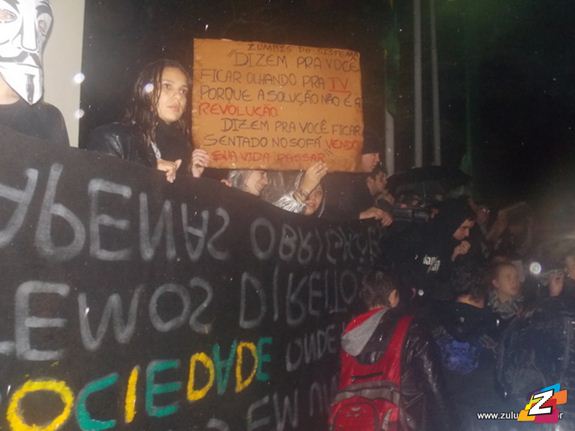 ZUMBIS DO SISTEMA
"DIZEM PRA VOCÊ
FICAR OLHANDO PRA TV
PORQUE A SOLUÇÃO NÃO É A
REVOLUÇÃO
DIZEM PRA VOCÊ FICAR
SENTADO NO SOFÁ VENDO
SUA VIDA PASSAR"
APENAS OBRIGAÇÕES
DIREITOS
SOCIEDADE ONDE
EM UMA
Z